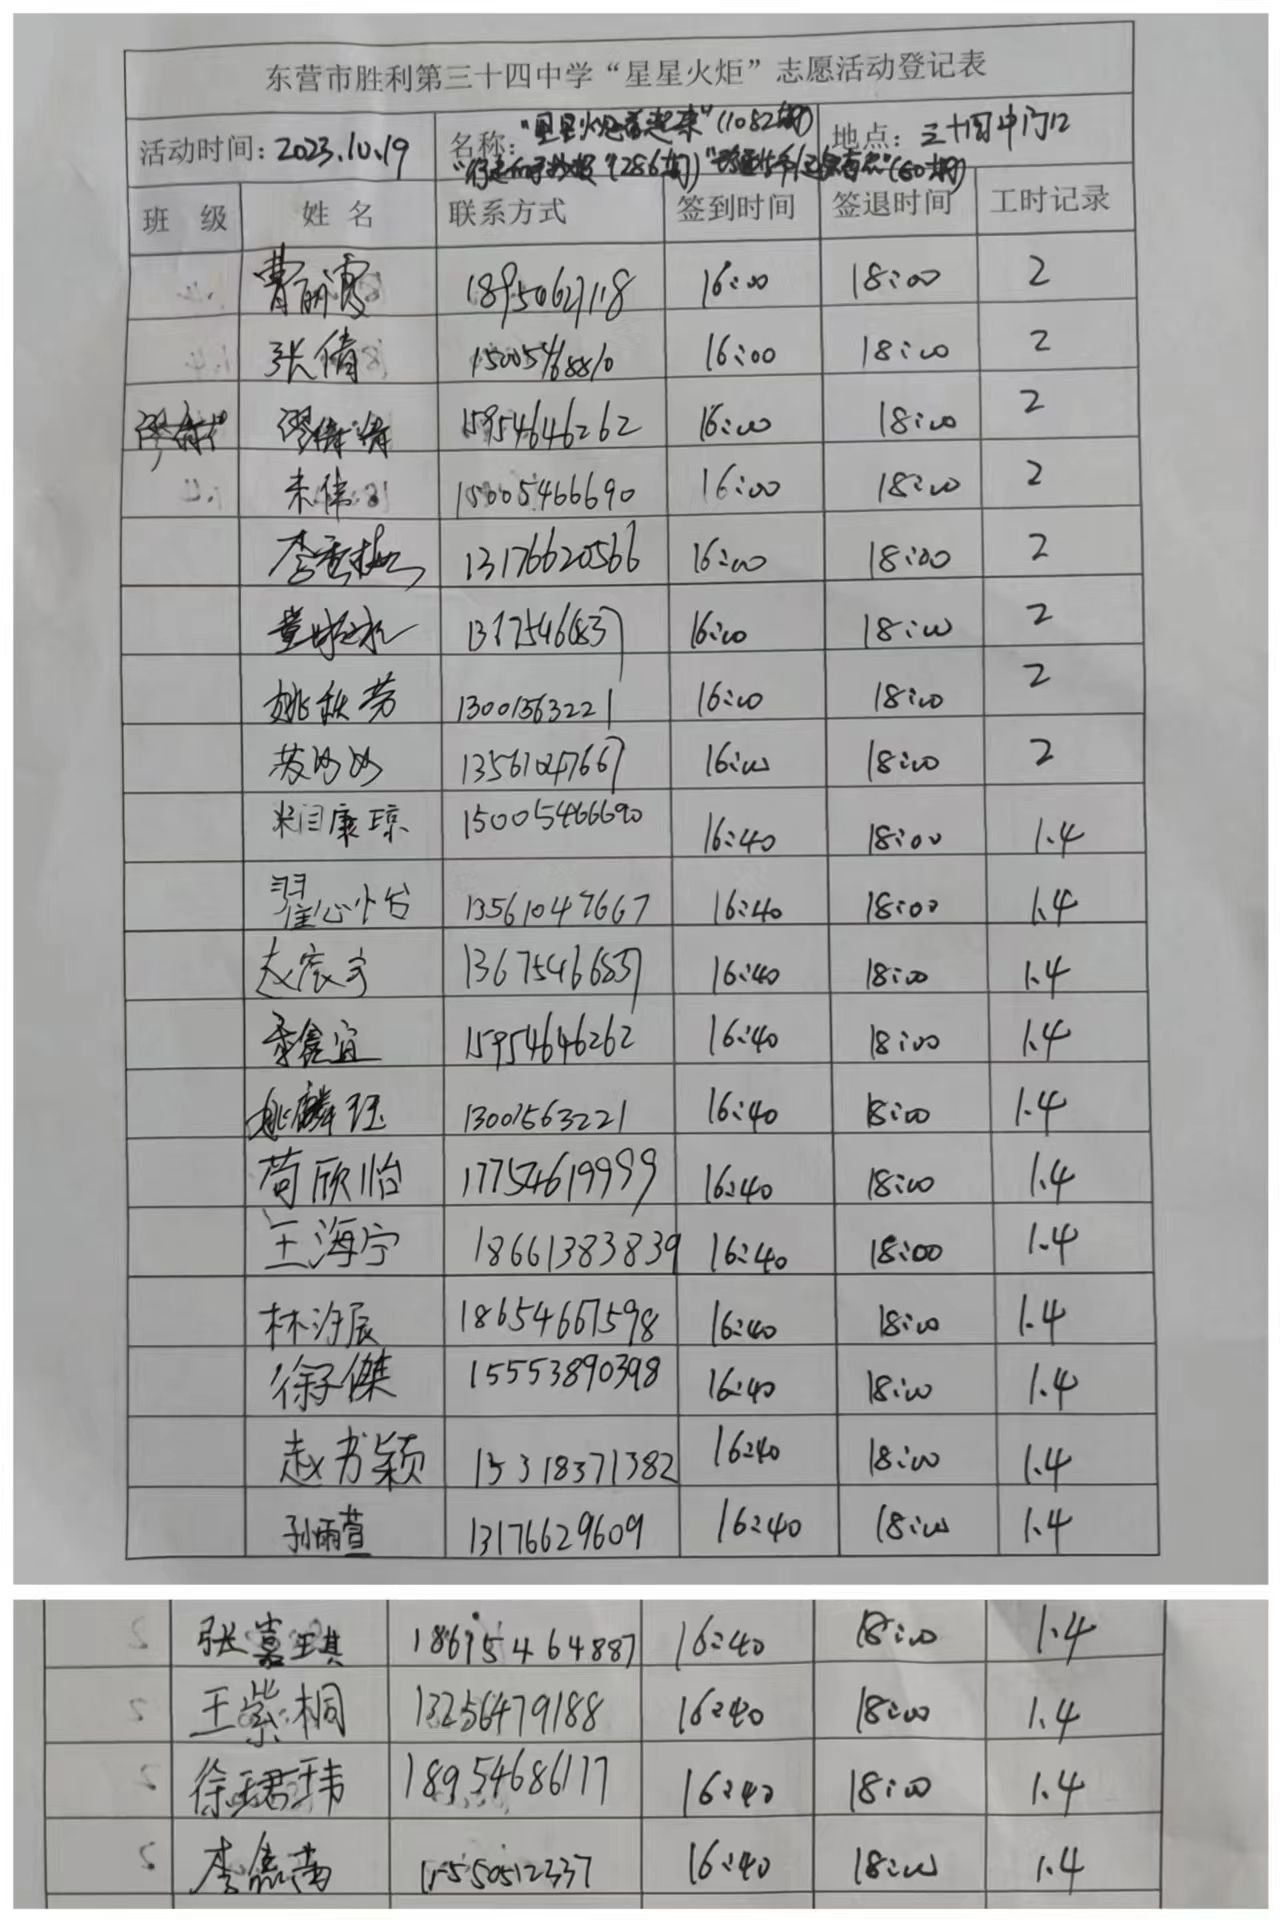 东营市胜利第三十四中学“星星火炬”志愿活动登记表
活动时间：2023.10.19 名称：“星星火炬 起来”(1082期) 地点：三十四中门口
(286期) (60期)
班 级 姓 名 联系方式 签到时间 签退时间 工时记录
曹丽霞 18950627118 16:00 18:00 2
张倩 15005468810 16:00 18:00 2
缪倩倩 15954646262 16:00 18:00 2
来伟 15005466690 16:00 18:00 2
李秀梅 13176620566 16:00 18:00 2
董 16:00 18:00 2
姚秋芳 13001563221 16:00 18:00 2
苏 13561047667 16:00 18:00 2
康琼 15005466690 16:40 18:00 1.4
翟心怡 13561047667 16:40 18:00 1.4
赵宸宇 13675466837 16:40 18:00 1.4
鑫宜 15954646262 16:40 18:00 1.4
姚麟珏 13001563221 16:40 18:00 1.4
苟欣怡 17754619999 16:40 18:00 1.4
王海宁 18661383839 16:40 18:00 1.4
林汐辰 18654667598 16:40 18:00 1.4
徐子傑 15553890398 16:40 18:00 1.4
赵书颖 15318371382 16:40 18:00 1.4
孙雨萱 13176629609 16:40 18:00 1.4
张嘉琪 18675464887 16:40 18:00 1.4
王紫桐 13256479188 16:40 18:00 1.4
徐珺玮 18954686177 16:40 18:00 1.4
李 15550512337 16:40 18:00 1.4